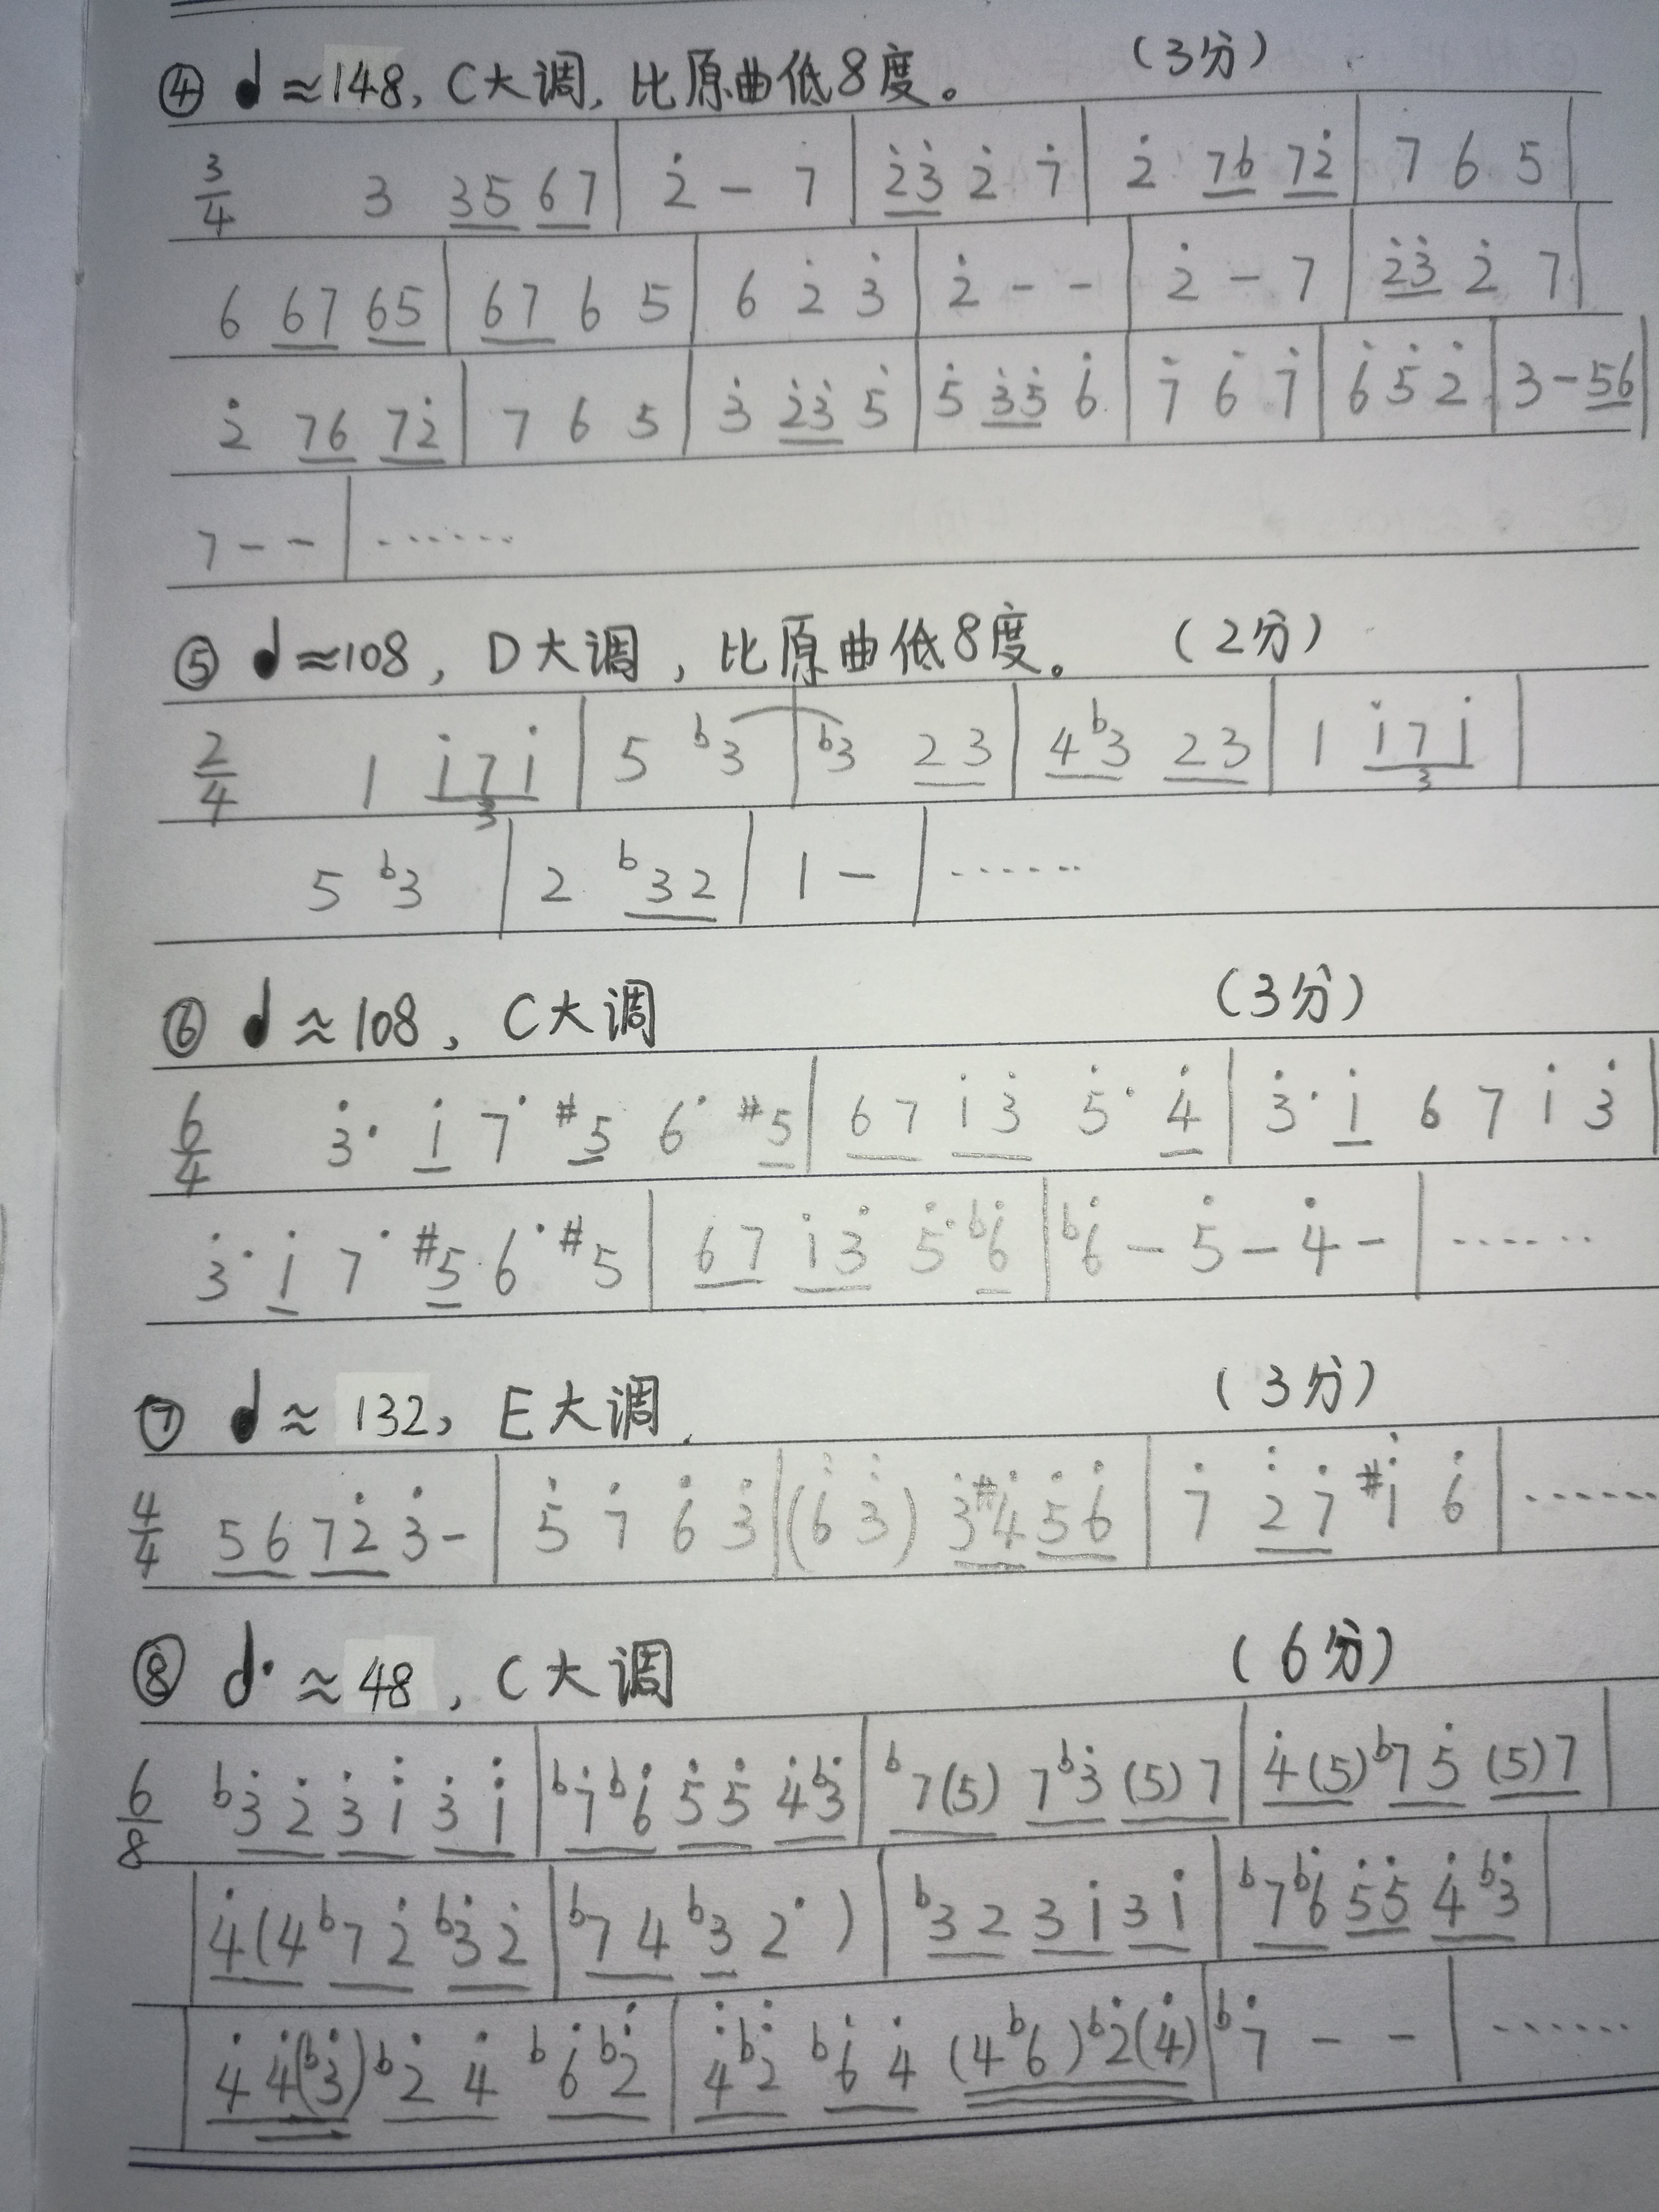 ④ ♩≈148, C大调, 比原曲低8度。 (3分)
3/4 3 3̲5̲ 6̲7̲ | 2̇ - 7 | 2̲̇3̲̇ 2̇ 7̇ | 2̇ 7̲6̲ 7̲2̲̇ | 7 6 5 |
6 6̲7̲ 6̲5̲ | 6̲7̲ 6 5 | 6 2̇ 3̇ | 2̇ - - | 2̇ - 7 | 2̲̇3̲̇ 2̇ 7 |
2̇ 7̲6̲ 7̲2̲̇ | 7 6 5 | 3̇ 2̲̇3̲̇ 5̇ | 5̇ 3̲̇5̲̇ 6̇ | 7̇ 6̇ 7̇ | 6̇ 5̇ 2̇ | 3 - 5̲6̲ |
7 - - | ······
⑤ ♩≈108, D大调, 比原曲低8度。 (2分)
2/4 1 1̲̇7̲1̲̇ 3 | 5 b3 | b3 2̲3̲ | 4̲b3̲ 2̲3̲ | 1 1̲̇7̲1̲̇ 3 |
5 b3 | 2 b3̲2̲ | 1 - | ······
⑥ ♩≈108, C大调 (3分)
6/4 3̇· 1̲̇ 7· #5̲ 6· #5̲ | 6̲7̲ 1̲̇3̲̇ 5̇· 4̲̇ | 3̇· 1̲̇ 6 7 1̇ 3̇ |
3̇· 1̲̇ 7· #5̲ 6· #5 | 6̲7̲ 1̲̇3̲̇ 5̇· b6̲̇ | b6̇ - 5̇ - 4̇ - | ······
⑦ ♩≈132, E大调. (3分)
4/4 5̲6̲ 7̲2̲̇ 3̇ - | 5̇ 7̇ 6̇ 3̇ | (6̇ 3̇) 3̲̇#4̲̇ 5̲̇6̲̇ | 7̇ 2̲̈7̲̇ #1̈ 6̇ | ······
⑧ ♩.≈48, C大调 (6分)
6/8 b3̇ 2̲̇ 3̲̇ 1̲̈ 3̲̇ 1̲̈ | b7̲̇b6̲̇ 5̲̇5̲̇ 4̲̇b3̲̇ | b7̲(5̲) 7̲b3̲̇ (5̲)7̲ | 4̲̇(5̲) b7̲5̲̇ (5̲)7̲ |
4̲̇(4̲ b7̲2̲̇ b3̲̇2̲̇ | b7̲4̲ b3̲̇ 2·) | b3̲2̲ 3̲1̲̇ 3̲1̲̇ | b7̲b6̲̇ 5̲̇5̲̇ 4̲̇b3̲̇ |
4̲̇ 4̲̇(b3̲̇) b2̲̇ 4̲̇ b6̲̇b2̲̈ | 4̲̈b2̲̈ b6̲̇4̲̇ (4̲b6̲)b2̲̇(4̲̇) | b7̇ - - | ······